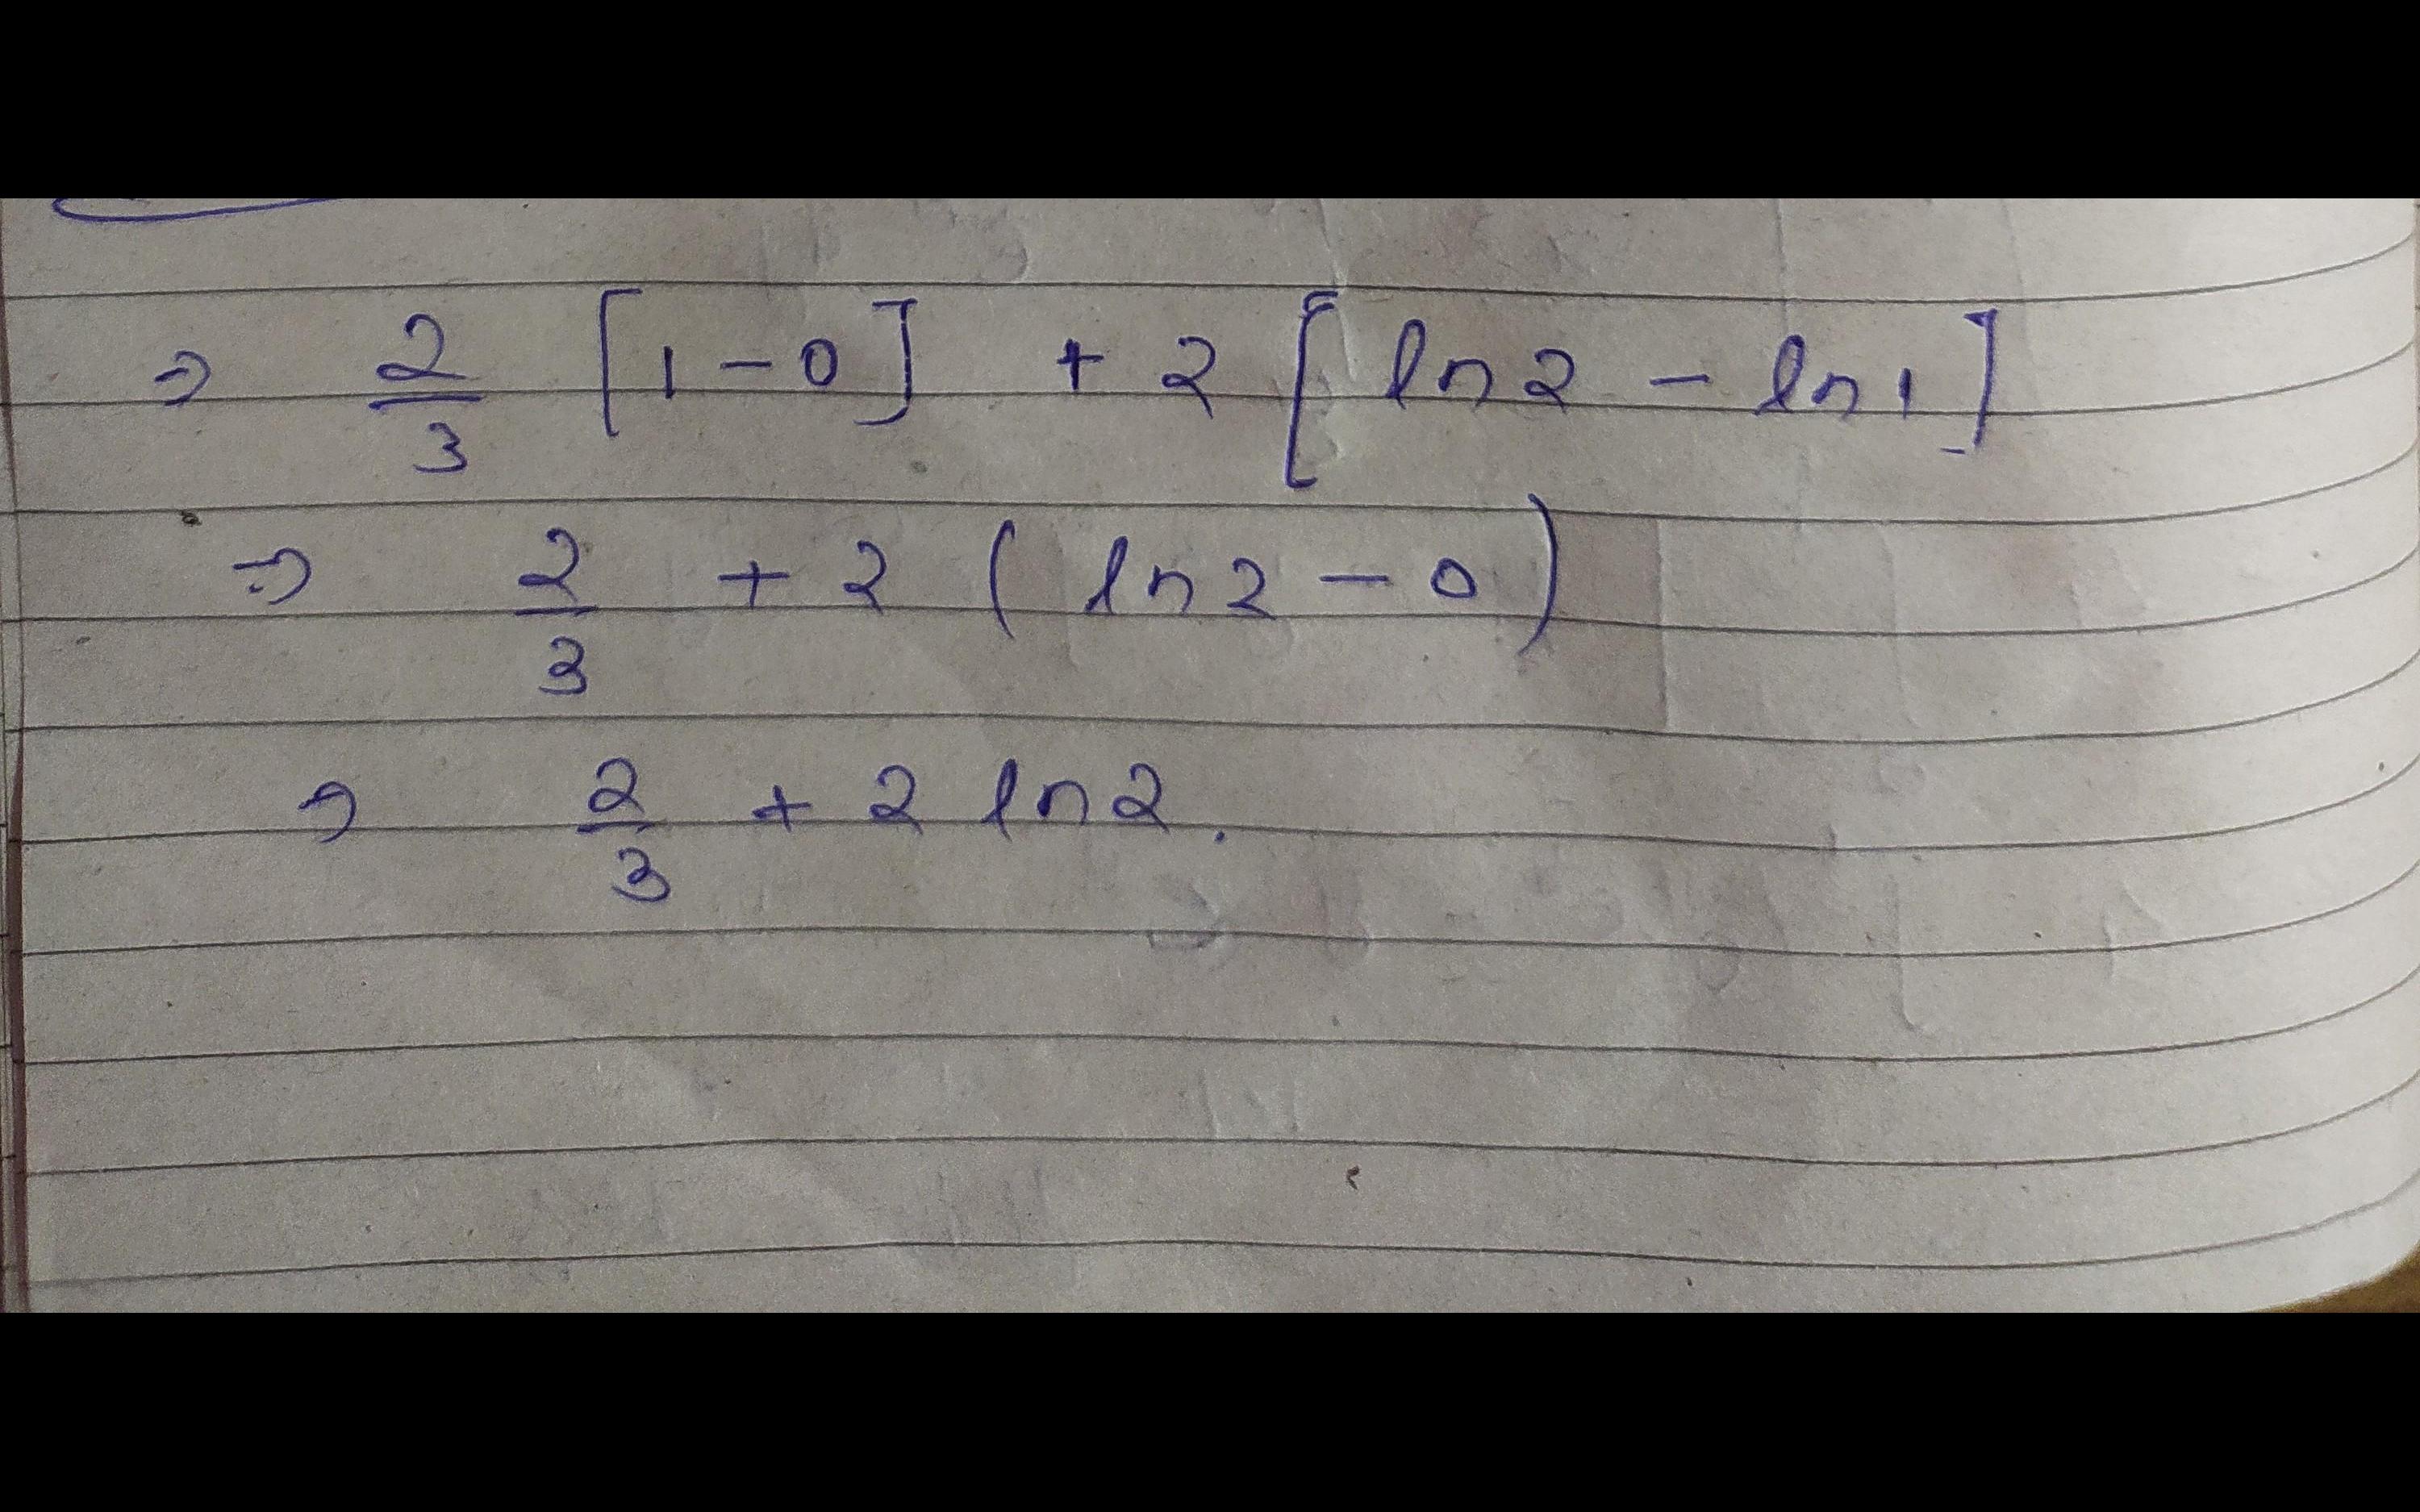 ⇒ 2/3 [1 - 0] + 2 [ln 2 - ln 1]
⇒ 2/3 + 2 (ln 2 - 0)
⇒ 2/3 + 2 ln 2.